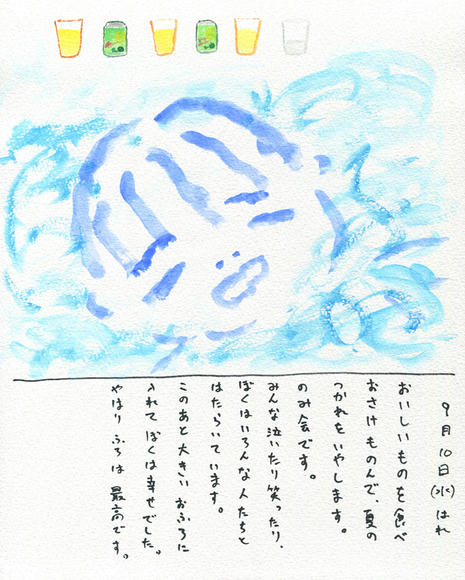 9月10日(水)はれ
おいしいものを食べ
おさけものんで、夏の
つかれをいやします。
のみ会です。
みんな泣いたり笑ったり、
ぼくはいろんな人たちと
はたらいています。
このあと大きいおふろに
入れてぼくは幸せでした。
やはりふろは最高です。